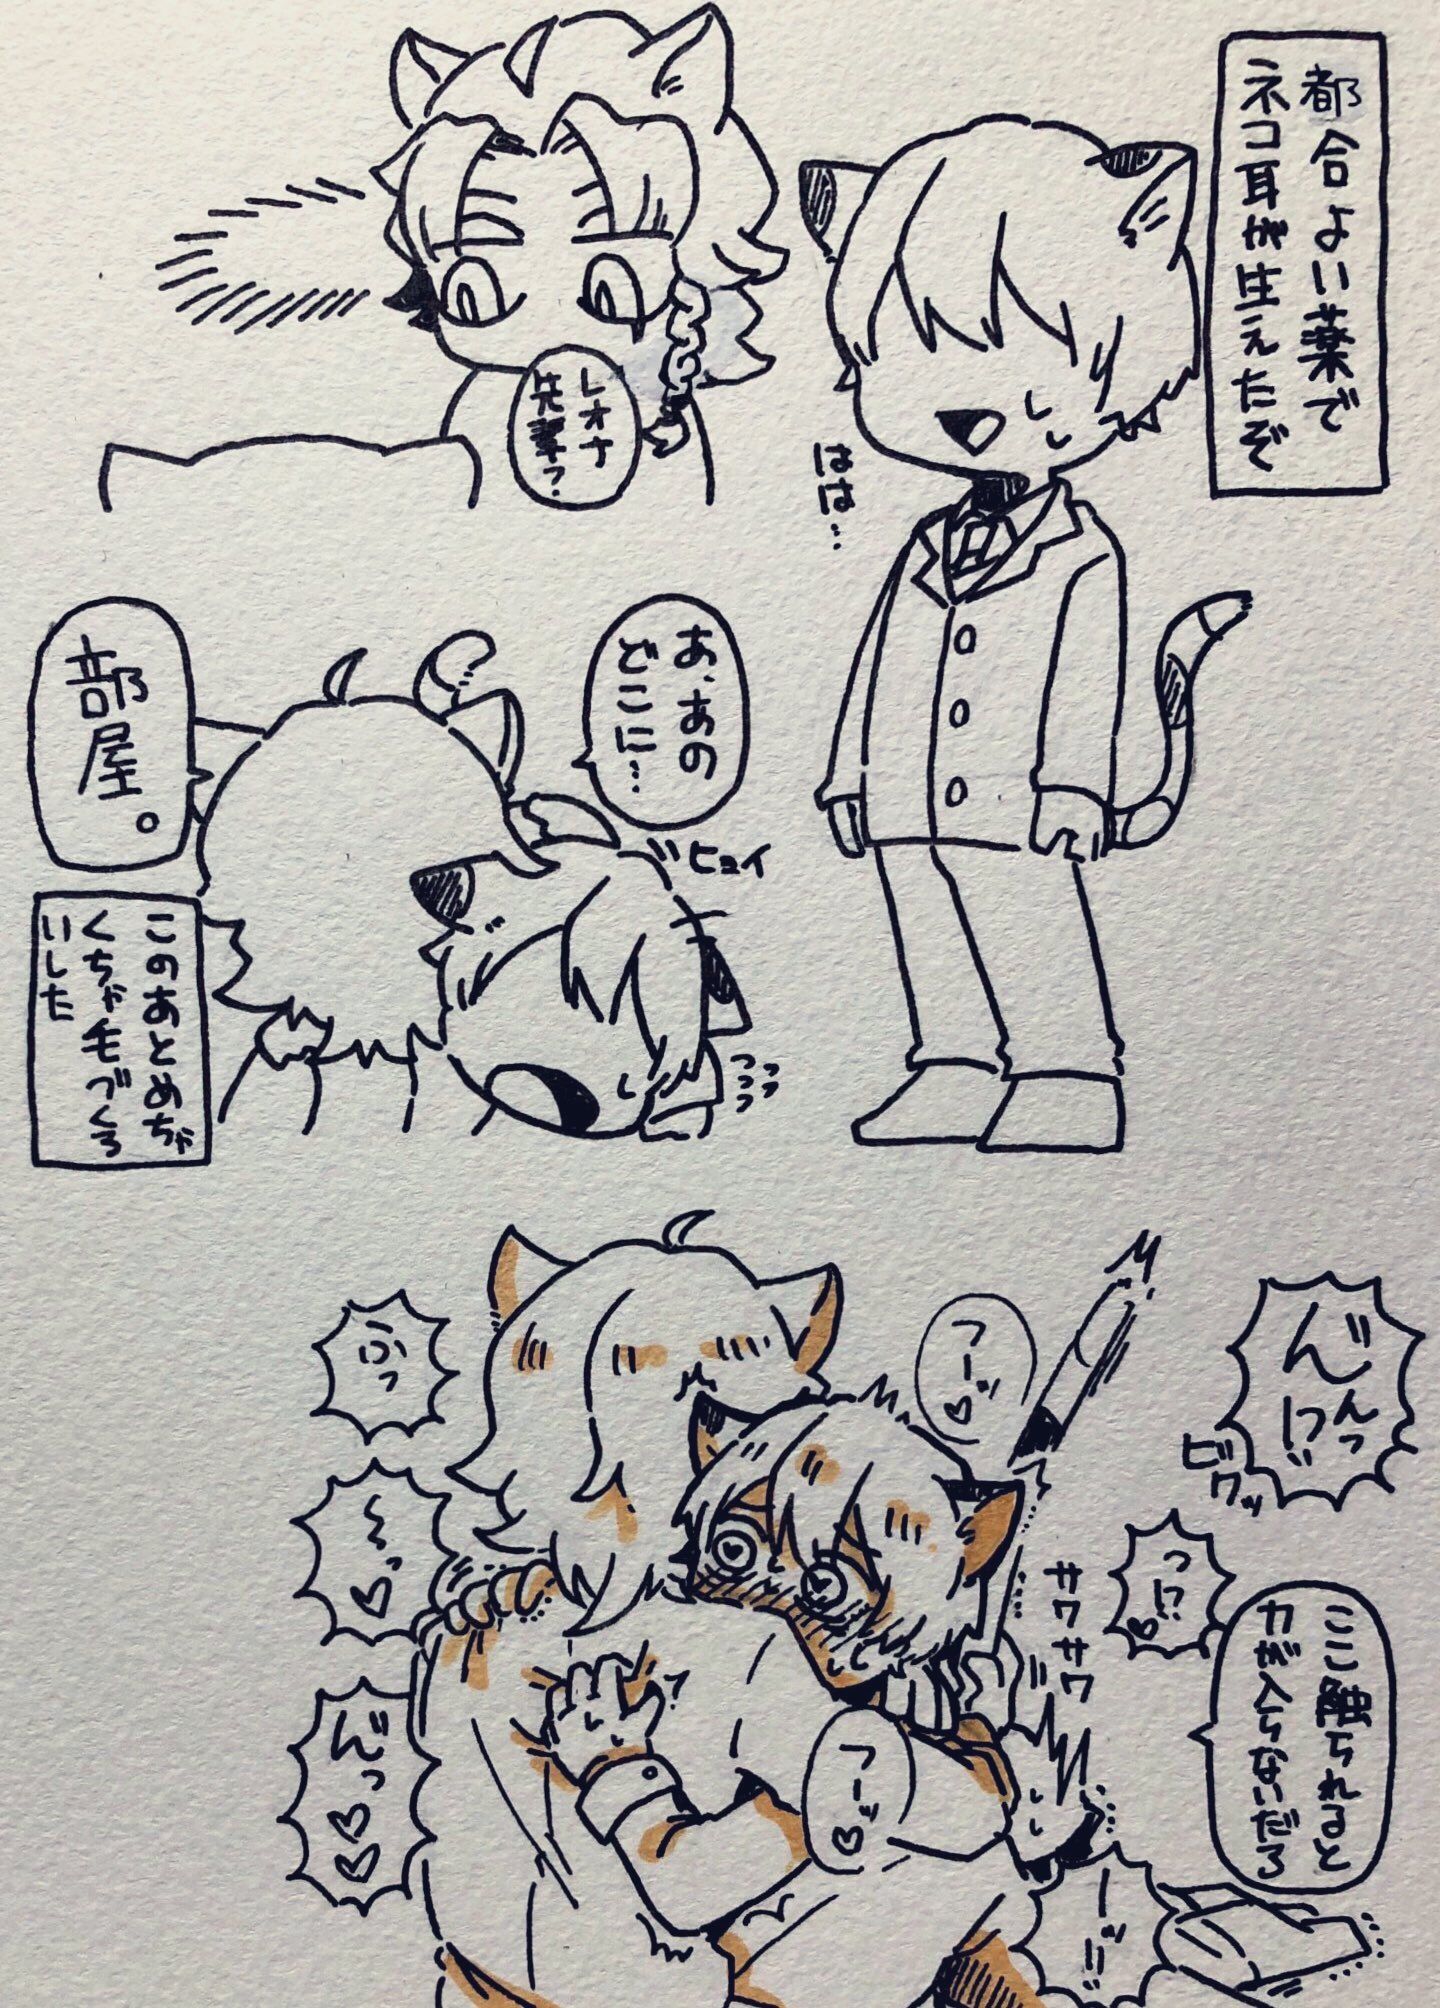 都合よい薬で
ネコ耳が生えたぞ
はは…
レオナ
先輩っ?
あ、あの
どこに…
ヒョイ
部屋。
このあとめちゃ
くちゃ毛づくろ
いした
フーッ♡
ビクッ
サワサワ
ここ触られると
力が入らないだろ
ふっ
〜っ♡
んっ♡♡
フーッ♡